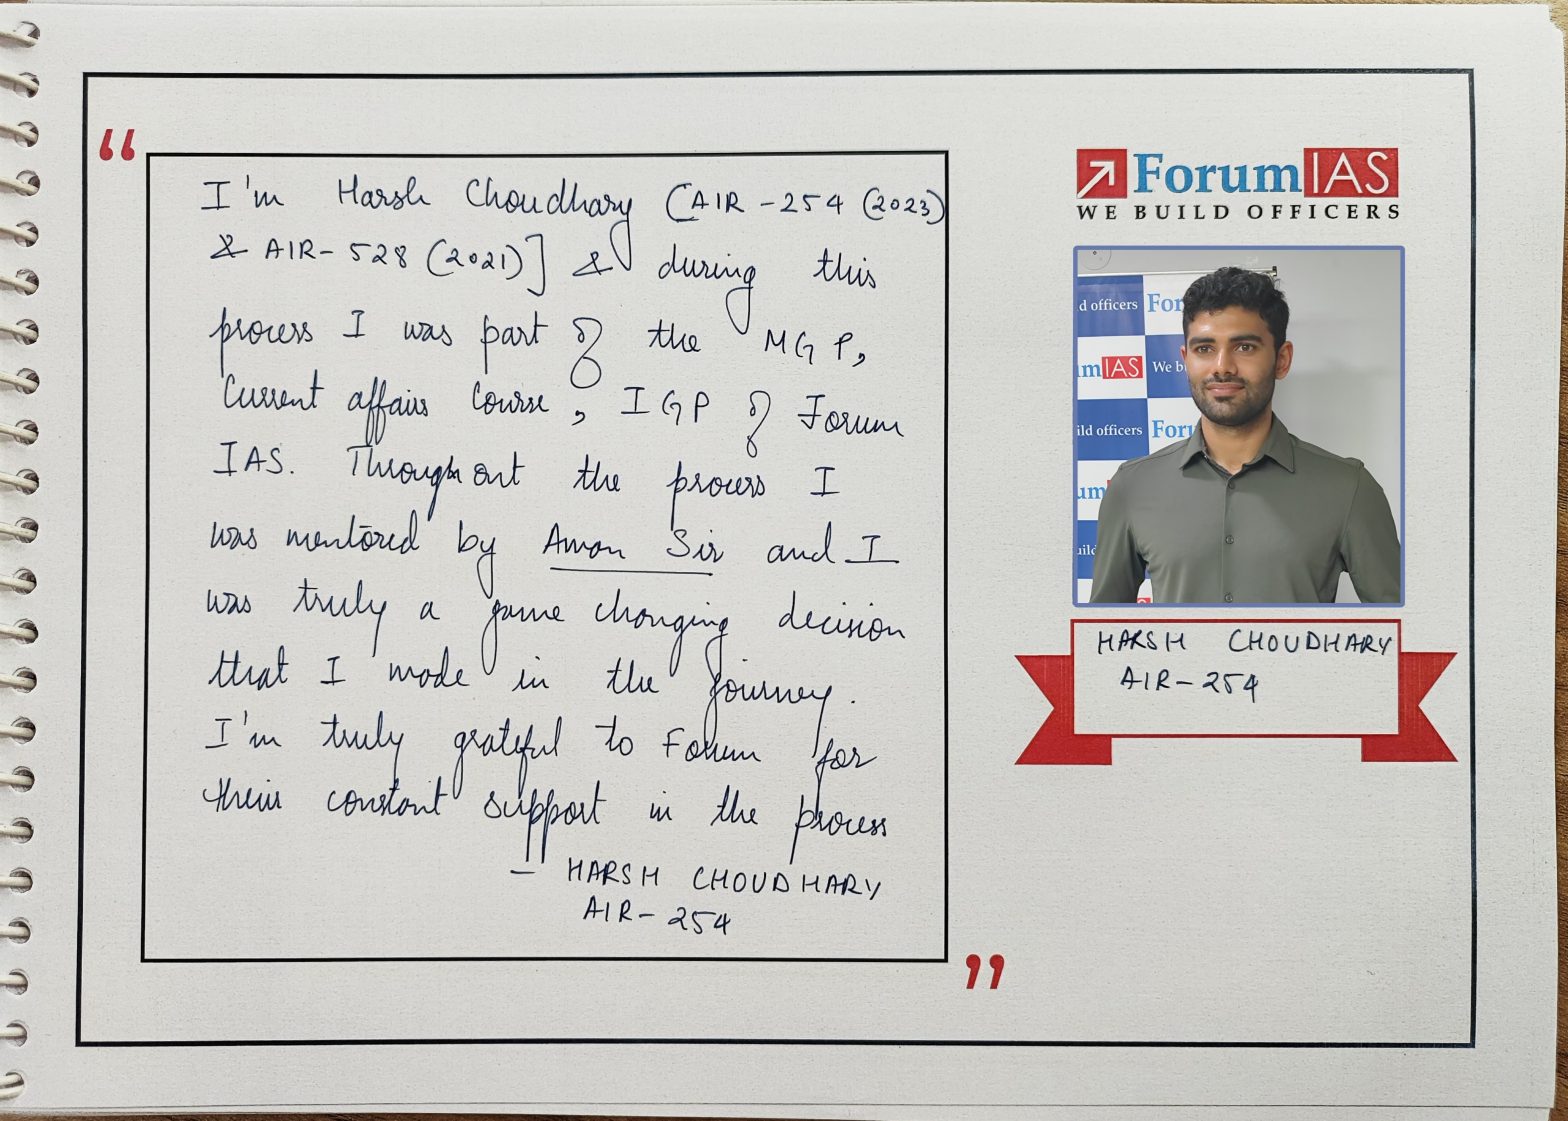 “
I'm Harsh Choudhary (AIR-254 (2023)
& AIR-528 (2021)] & during this
process I was part of the MGP,
Current affairs Course, IGP of Forum
IAS. Throughout the process I
was mentored by Aman Sir and I
was truly a game changing decision
that I made in the journey.
I'm truly grateful to Forum for
their constant support in the process
— HARSH CHOUDHARY
AIR-254
”
ForumIAS
WE BUILD OFFICERS
d officers For
um IAS We bu
ild officers Foru
um
uild
HARSH CHOUDHARY
AIR-254